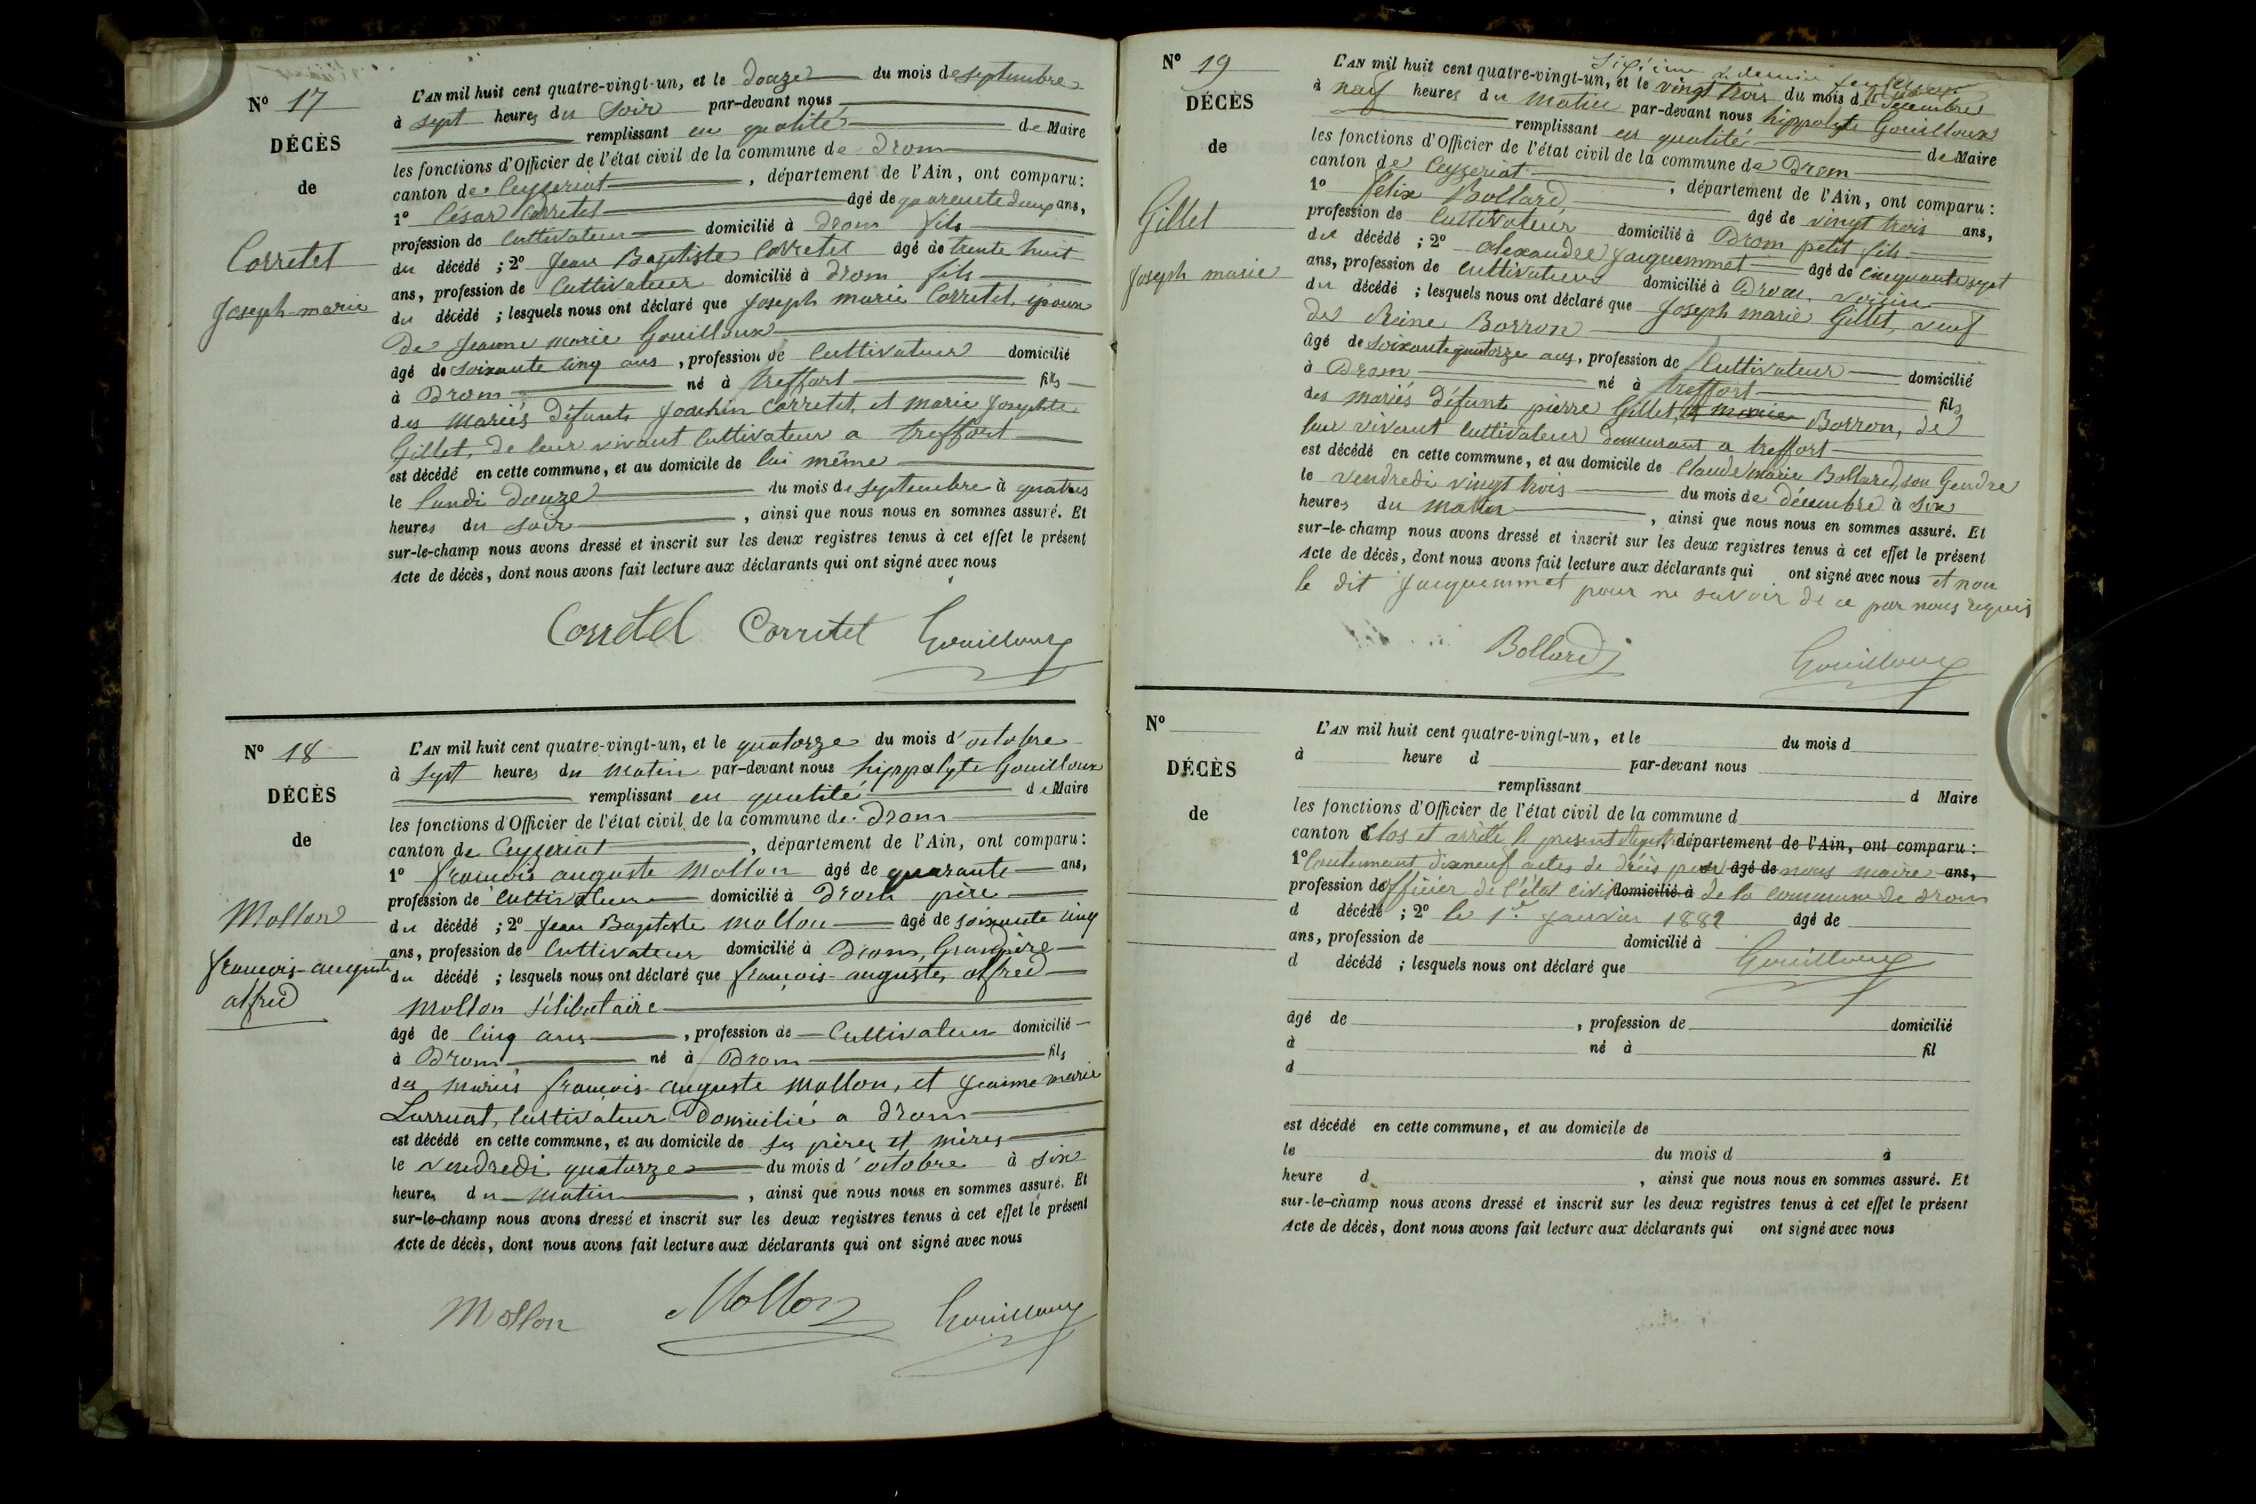 N° 17
DÉCÈS
de
Corretel
Joseph-marie
L'AN mil huit cent quatre-vingt-un, et le douze du mois de septembre
à sept heures du soir par-devant nous
remplissant en qualité de Maire
les fonctions d'Officier de l'état civil de la commune de Drom
canton de Ceyzeriat, département de l'Ain, ont comparu:
1° César Corretel âgé de quarente deux ans,
profession de Cultivateur domicilié à Drom fils
du décédé ; 2° Jean Baptiste Corretel âgé de trente huit
ans, profession de Cultivateur domicilié à Drom fils
du décédé ; lesquels nous ont déclaré que Joseph marie Corretel, époux
de Jeanne marie Gouilloux
âgé de soixante cinq ans, profession de Cultivateur domicilié
à Drom né à treffort fils
des mariés défunts Joachin Corretel, et marie Josephte
Gillet, de leur vivant Cultivateur a treffort
est décédé en cette commune, et au domicile de lui même
le lundi douze du mois de septembre à quatres
heures du soir, ainsi que nous nous en sommes assuré. Et
sur-le-champ nous avons dressé et inscrit sur les deux registres tenus à cet effet le présent
Acte de décès, dont nous avons fait lecture aux déclarants qui ont signé avec nous
Corretel Corretel Gouilloux
N° 18
DÉCÈS
de
Mollon
françois-auguste
alfred
L'AN mil huit cent quatre-vingt-un, et le quatorze du mois d'octobre
à sept heures du matin par-devant nous hyppolyte Gouilloux
remplissant en qualité de Maire
les fonctions d'Officier de l'état civil de la commune de Drom
canton de Ceyzeriat, département de l'Ain, ont comparu:
1° françois auguste Mollon âgé de quarante ans,
profession de cultivateur domicilié à Drom père
du décédé ; 2° Jean Baptiste Mollon âgé de soixante cinq
ans, profession de Cultivateur domicilié à Drom, Grandpère
du décédé ; lesquels nous ont déclaré que françois-auguste, alfred
Mollon sélibataire
âgé de cinq ans, profession de Cultivateur domicilié
à Drom né à Drom fils
des mariés françois-auguste Mollon, et Jeanne marie
Larruat, Cultivateur Domicilié a Drom
est décédé en cette commune, et au domicile de ses pères et mères
le vendredi quatorze du mois d'octobre à six
heures du matin, ainsi que nous nous en sommes assuré. Et
sur-le-champ nous avons dressé et inscrit sur les deux registres tenus à cet effet le présent
Acte de décès, dont nous avons fait lecture aux déclarants qui ont signé avec nous
Mollon Mollon Gouilloux
N° 19
DÉCÈS
de
Gillet
Joseph marie
Sixième et dernier feuillet
L'AN mil huit cent quatre-vingt-un, et le vingt trois du mois de décembre
à neuf heures du matin par-devant nous hippolyte Gouilloux
remplissant en qualité de Maire
les fonctions d'Officier de l'état civil de la commune de Drom
canton de Ceyzeriat, département de l'Ain, ont comparu:
1° félix Bollard âgé de vingt trois ans,
profession de Cultivateur domicilié à Drom petit fils
du décédé ; 2° alexandre Jacquemmet âgé de cinquante sept
ans, profession de cultivateur domicilié à Drom, voisin
du décédé ; lesquels nous ont déclaré que Joseph marie Gillet, veuf
de Reine Borron
âgé de soixante quatorze ans, profession de Cultivateur domicilié
à Drom né à treffort fils
des mariés défunts pierre Gillet, et marie Borron, de
leur vivant cultivateur demeurant a treffort
est décédé en cette commune, et au domicile de Claude marie Bollard, son Gendre
le vendredi vingt trois du mois de décembre à six
heures du matin, ainsi que nous nous en sommes assuré. Et
sur-le-champ nous avons dressé et inscrit sur les deux registres tenus à cet effet le présent
Acte de décès, dont nous avons fait lecture aux déclarants qui ont signé avec nous et non
le dit Jacquemmet pour ne savoir de ce par nous requis
Bollard Gouilloux
N°
DÉCÈS
de
L'AN mil huit cent quatre-vingt-un, et le du mois d
à heure d par-devant nous
remplissant d Maire
les fonctions d'Officier de l'état civil de la commune d
canton Clos et arrêté le présent Registre département de l'Ain, ont comparu:
1° Contenant dixneuf actes de décès par âgé de nous maire ans,
profession de officier de l'état civil domicilié à de la commune de Drom
d décédé ; 2° le 1er Janvier 1882 âgé de
ans, profession de domicilié à
d décédé ; lesquels nous ont déclaré que Gouilloux
âgé de, profession de domicilié
à né à fil
d
est décédé en cette commune, et au domicile de
le du mois d à
heure d, ainsi que nous nous en sommes assuré. Et
sur-le-champ nous avons dressé et inscrit sur les deux registres tenus à cet effet le présent
Acte de décès, dont nous avons fait lecture aux déclarants qui ont signé avec nous